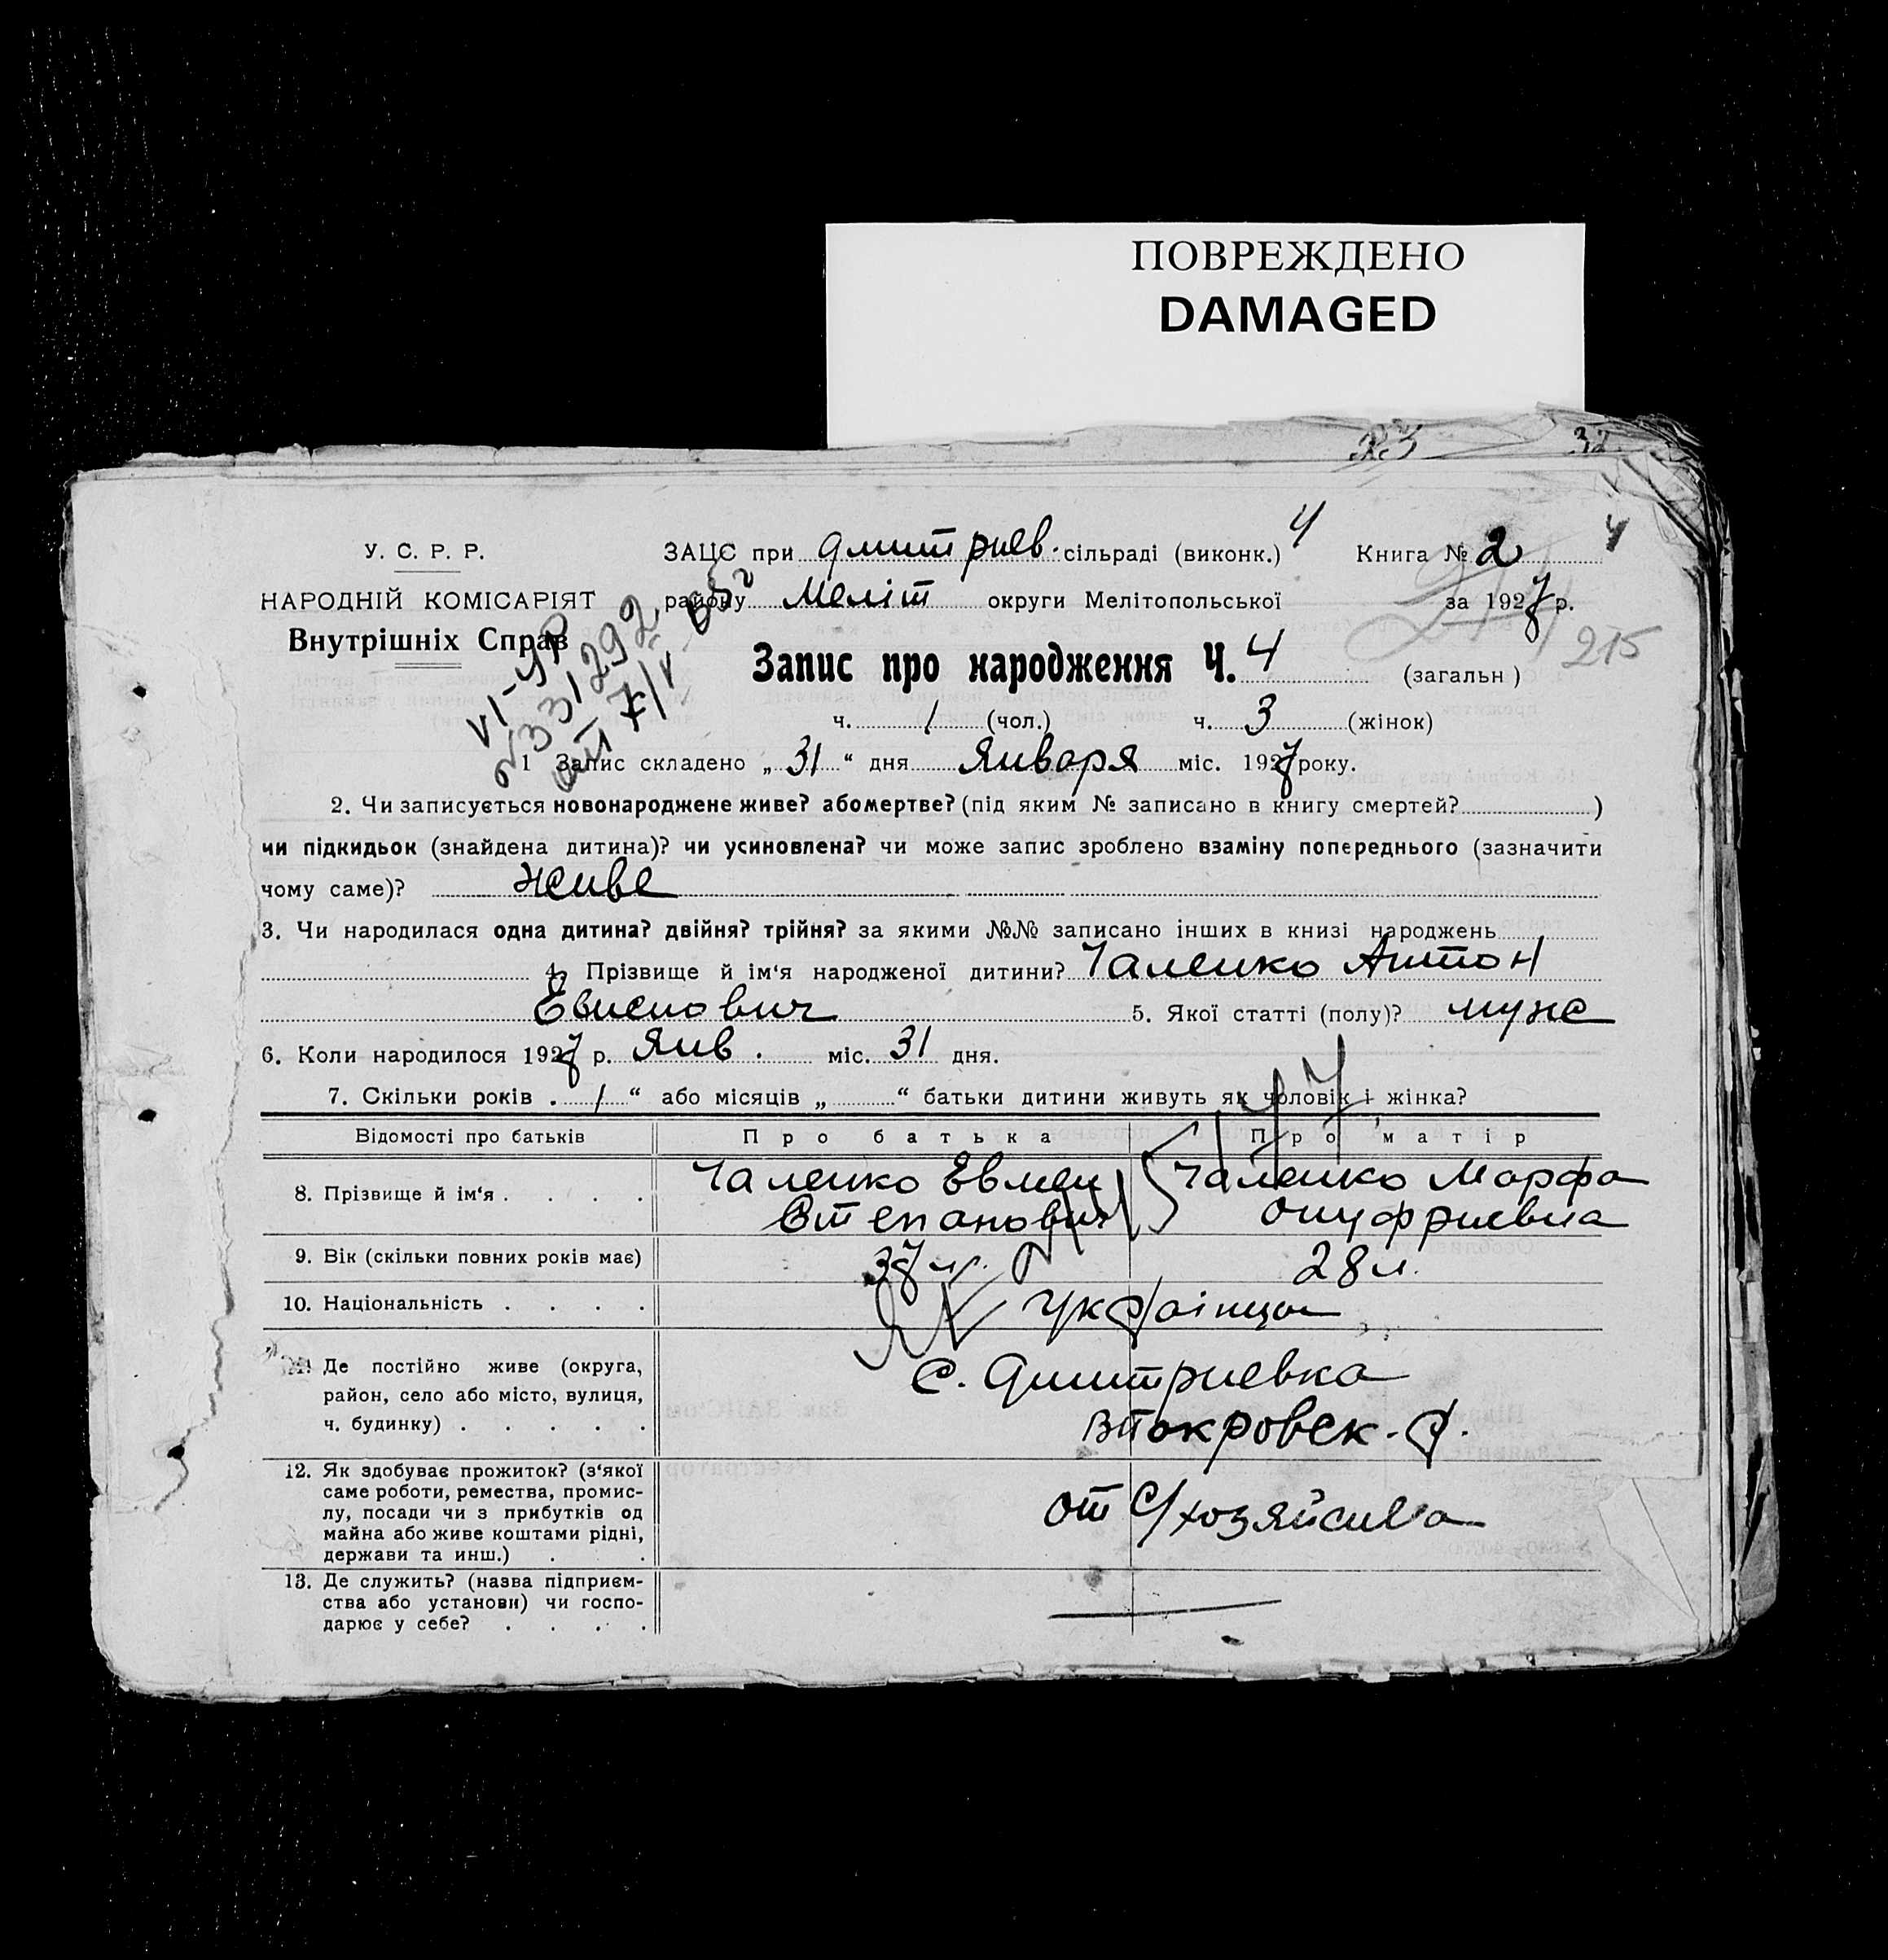 ПОВРЕЖДЕНО
DAMAGED
23 32
У. С. Р. Р.
НАРОДНІЙ КОМІСАРІЯТ
Внутрішніх Справ
ЗАЦС при Дмитриев. сільраді (виконк.) 4 Книга № 2 4
району Меліт округи Мелітопольської за 1927 р.
215
Запис про народження Ч. 4 (загальн)
ч. 1 (чол.) ч. 3 (жінок)
VI-УР
№ 331292
от 7/V-65г
1 Запис складено „ 31 “ дня Января міс. 1927 року.
2. Чи записується новонароджене живе? або мертве? (під яким № записано в книгу смертей? )
чи підкидьок (знайдена дитина)? чи усиновлена? чи може запис зроблено взаміну попереднього (зазначити
чому саме)? живе
3. Чи народилася одна дитина? двійня? трійня? за якими №№ записано інших в книзі народжень
4. Прізвище й ім‘я народженої дитини? Чаленко Антон
Евменович 5. Якої статті (полу)? муже
6. Коли народилося 1927 р. Янв. міс. 31 дня.
7. Скільки років . 1 “ або місяців „ “ батьки дитини живуть як чоловік і жінка?
Відомості про батьків Про батька Про матір
8. Прізвище й ім‘я . . . . Чаленко Евмен Чаленко Марфа
Степанович Онуфриевна
9. Вік (скільки повних років має) 37 28 л.
10. Національність . . . . Українци
11. Де постійно живе (округа, с. Дмитриевка
район, село або місто, вулиця,
ч. будинку) . . . . . Впокровск. р.
12. Як здобуває прожиток? (з‘якої
саме роботи, ремества, промис-
лу, посади чи з прибутків од от с/хозяйсива
майна або живе коштами рідні,
держави та инш.) . .
13. Де служить? (назва підприєм-
ства або установи) чи госпо-
дарює у себе? . . . .